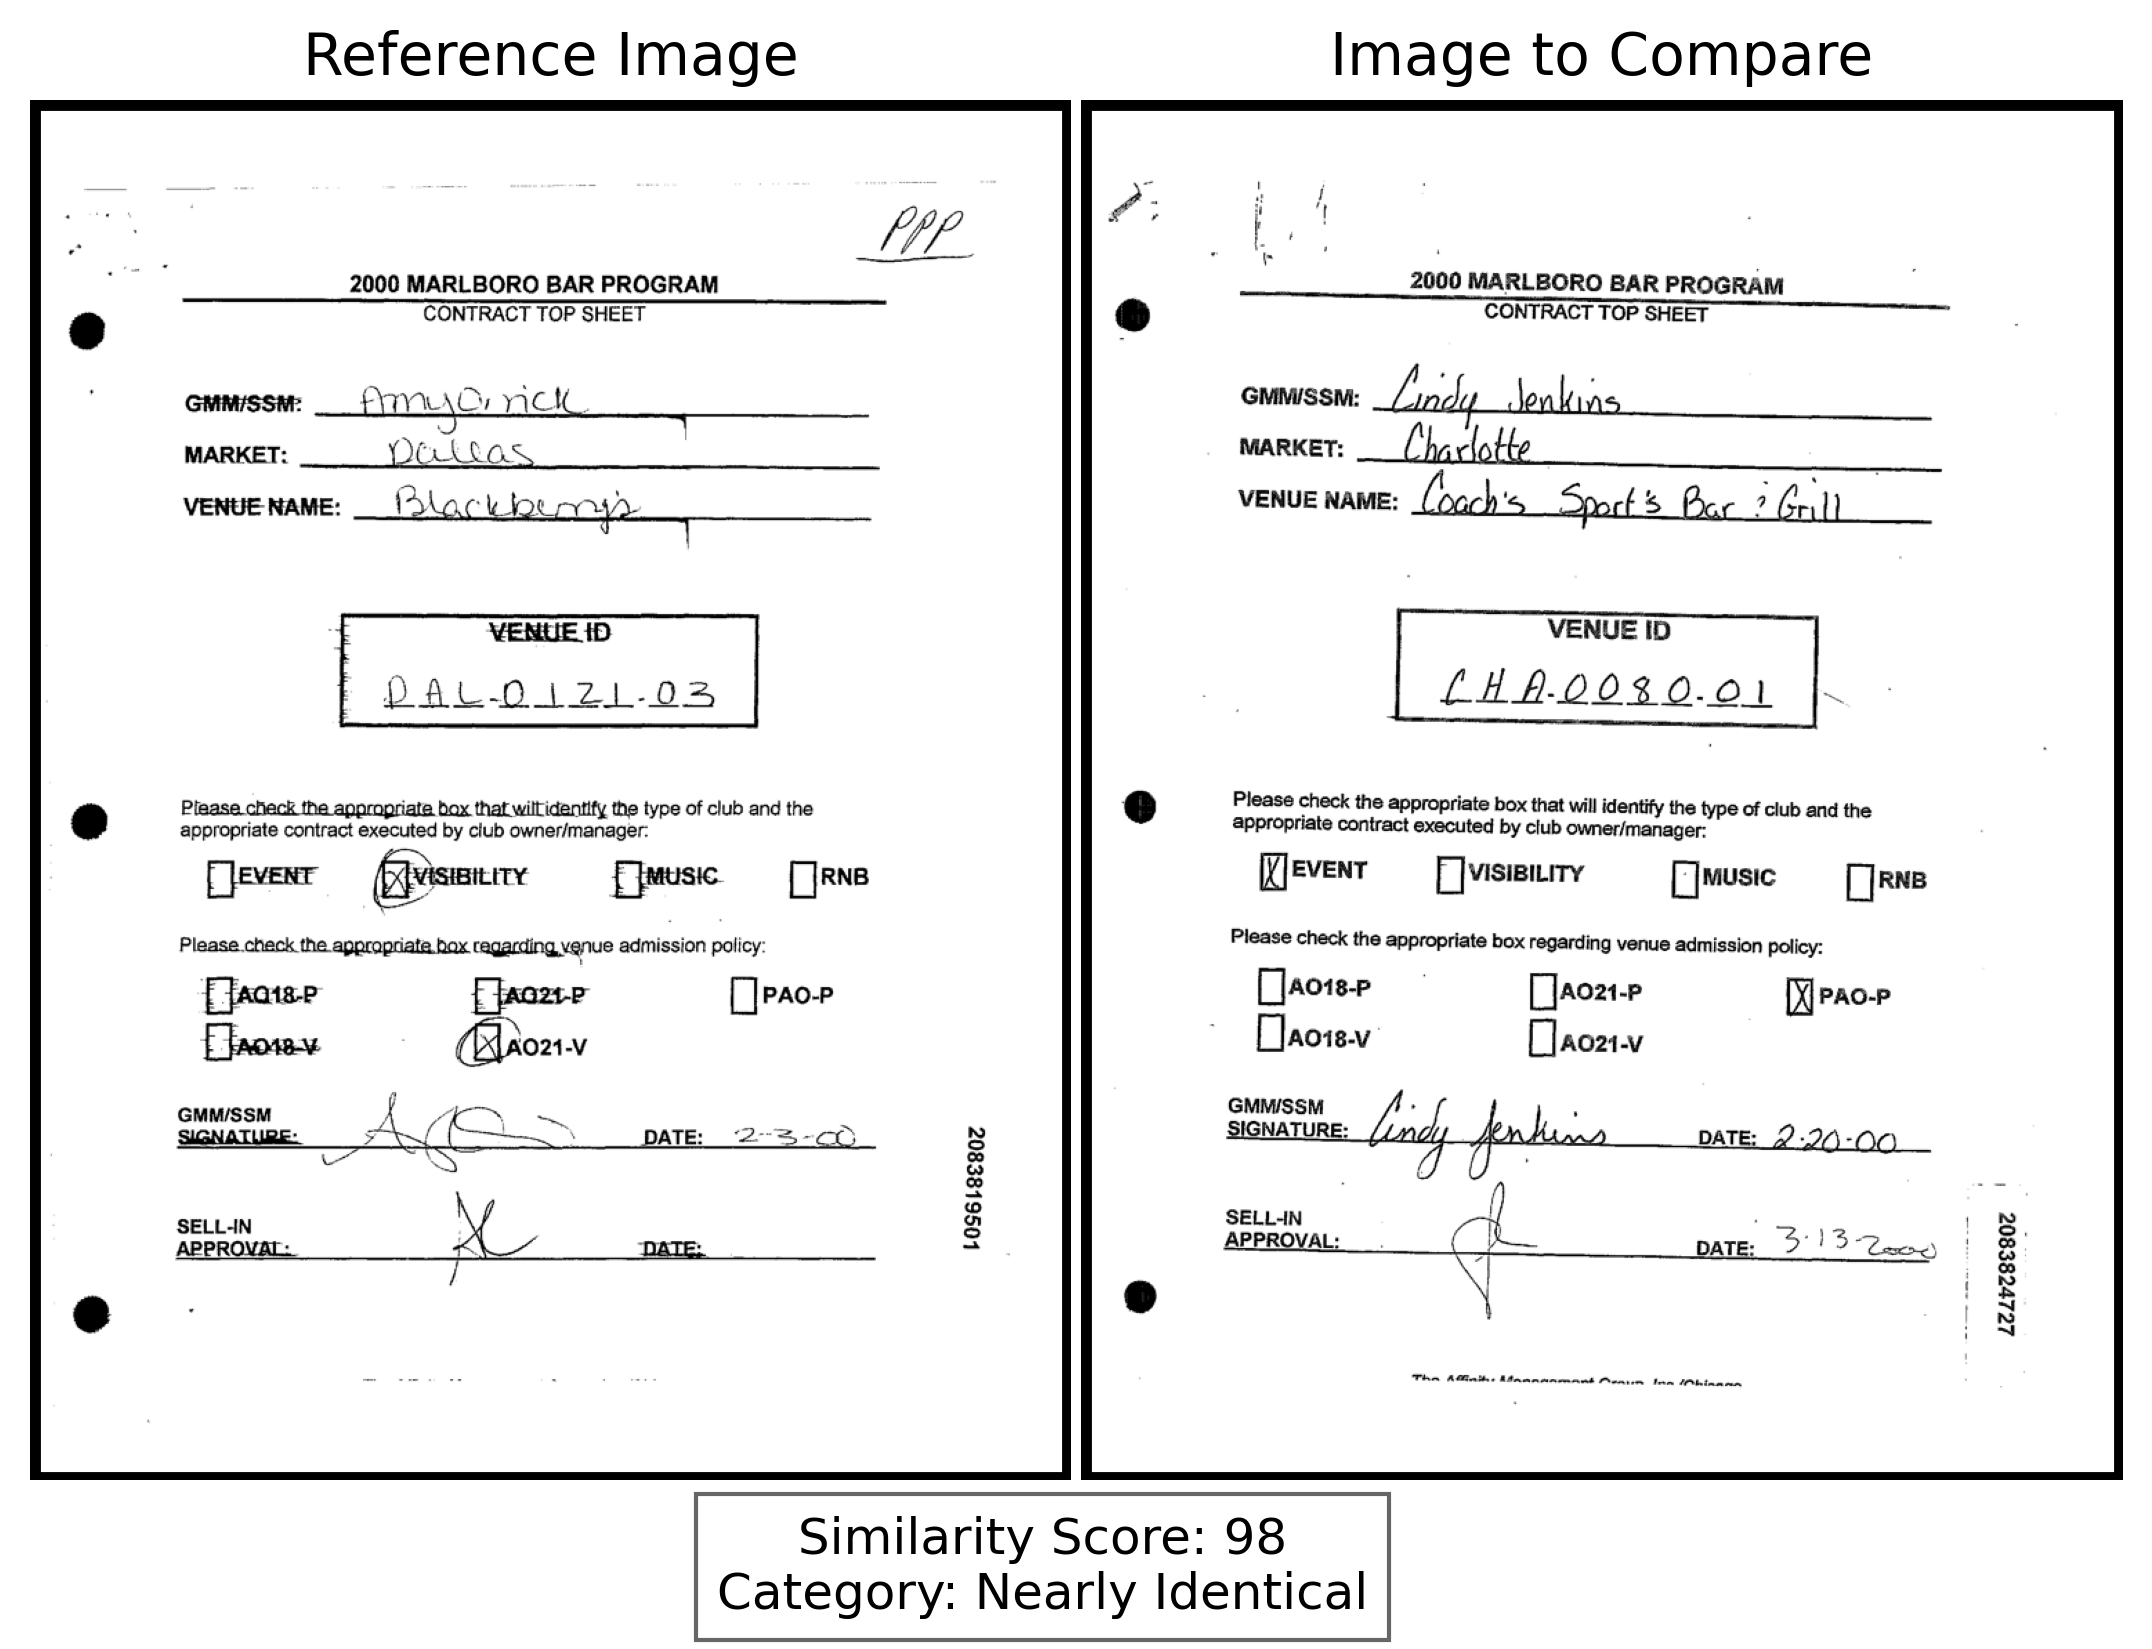 Reference Image
PPP
2000 MARLBORO BAR PROGRAM
CONTRACT TOP SHEET
GMM/SSM: Amy
MARKET: Dallas
VENUE NAME: Blackberry's
VENUE ID
DAL-0121-03
Please check the appropriate box that will identify the type of club and the
appropriate contract executed by club owner/manager:
EVENT VISIBILITY MUSIC RNB
Please check the appropriate box regarding venue admission policy:
AO18-P AO21-P PAO-P
AO18-V AO21-V
GMM/SSM
SIGNATURE: DATE: 2-3-00
SELL-IN
APPROVAL: DATE:
2083819501
Image to Compare
2000 MARLBORO BAR PROGRAM
CONTRACT TOP SHEET
GMM/SSM: Cindy Jenkins
MARKET: Charlotte
VENUE NAME: Coach's Sport's Bar & Grill
VENUE ID
CHA-0080-01
Please check the appropriate box that will identify the type of club and the
appropriate contract executed by club owner/manager:
EVENT VISIBILITY MUSIC RNB
Please check the appropriate box regarding venue admission policy:
AO18-P AO21-P PAO-P
AO18-V AO21-V
GMM/SSM
SIGNATURE: Cindy Jenkins DATE: 2-20-00
SELL-IN
APPROVAL: DATE: 3-13-2000
2083824727
The Affinity Management Group, Inc./Chicago
Similarity Score: 98
Category: Nearly Identical